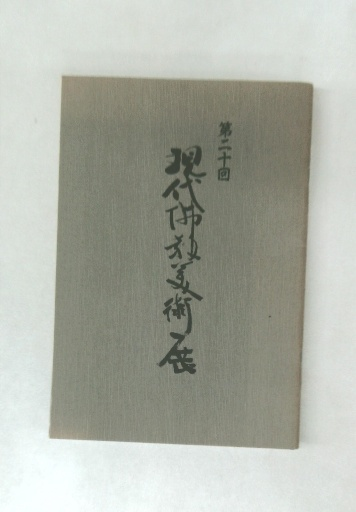 第二十回
現代佛教美術展